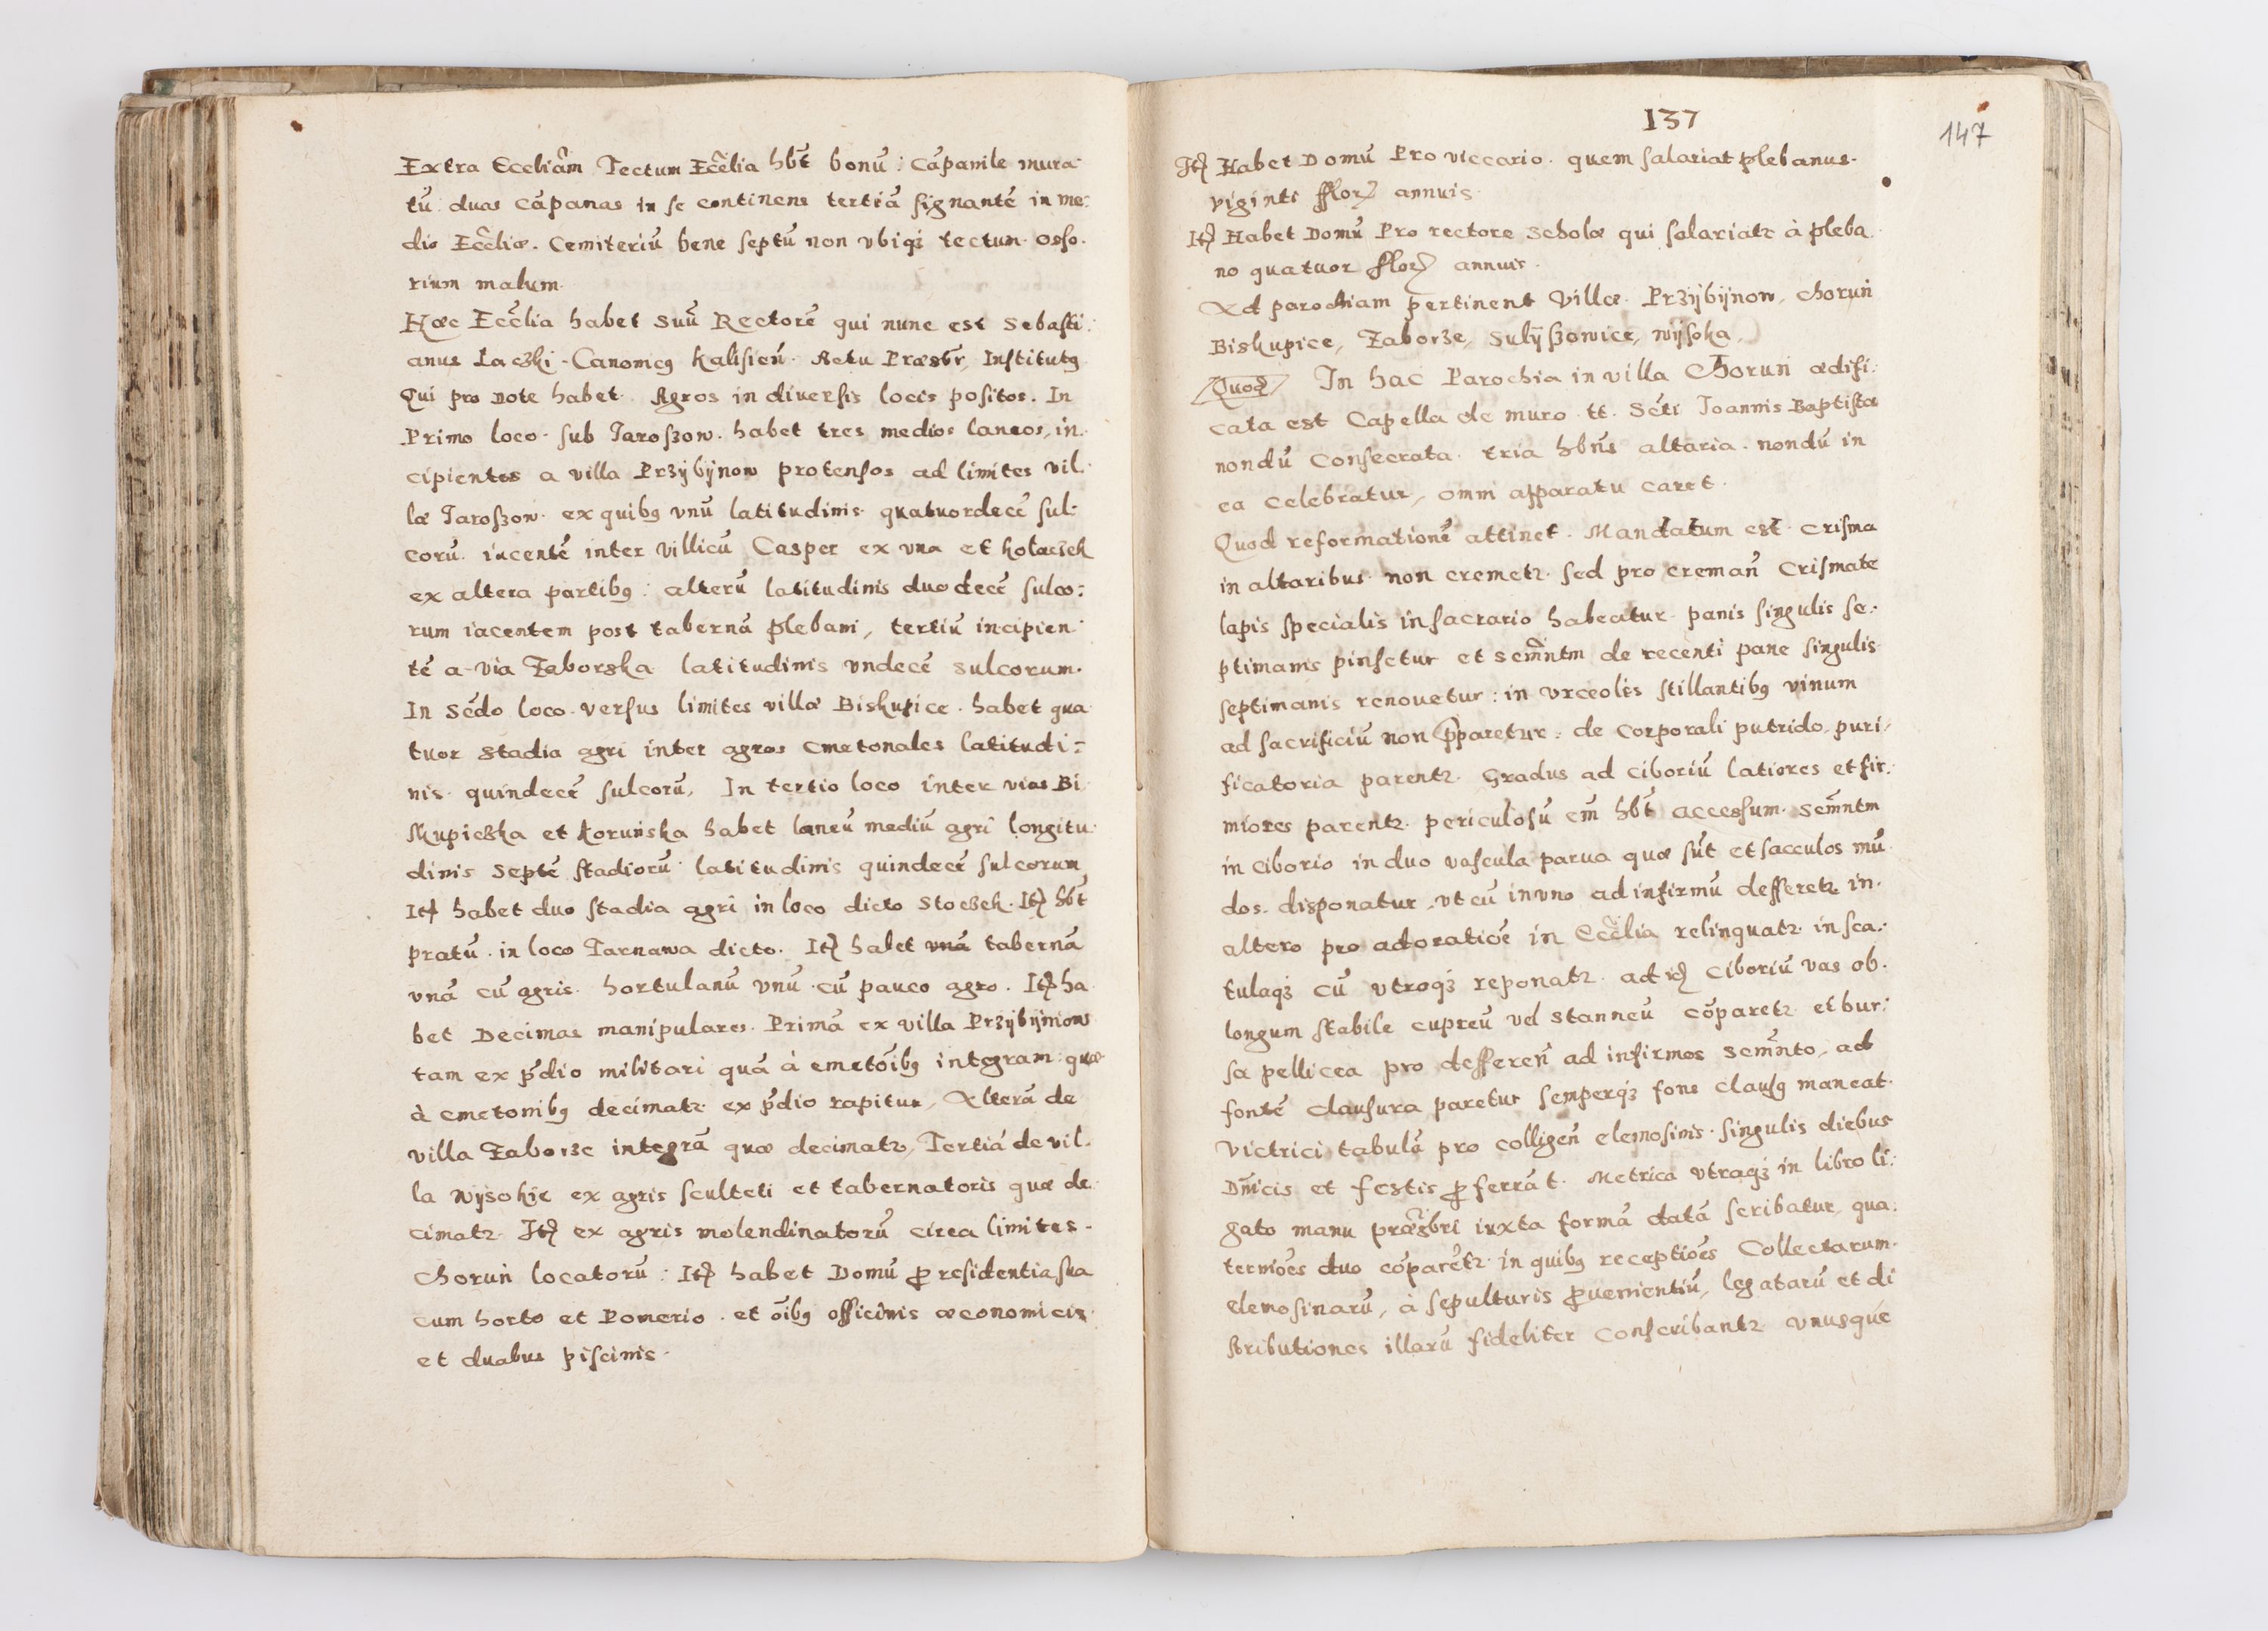 Extra Eccliam̃ Tectum Ecc̃lia hbt̃ bonũ: Cãpanile mura-
tũ. duas cãpanas in se continens tertiã signantẽ in me:
dio Ecc̃liæ. Cemiteriũ bene septũ non vbiqȝ tectum. osso.
rium malum.
Hæc Ecc̃lia habet Suũ Rectorẽ qui nunc est Sebasti:
anus Łaczki. Canonicꝰ kalisień. Actu Præsbr̃, Institutꝰ
Qui pro dote habet. Agros in diuersis locis positos. In
Primo loco. sub Jaroszow. habet tres medios laneos, in.
cipientes a villa Przÿbÿnow protensos ad limites vil.
læ Jaroszow. ex quibꝰ vnũ latitudinis quatuordecẽ sul-
corũ. iacentẽ inter villicũ Casper ex vna et kołaczek
ex altera partibꝰ: alterũ latitudinis duodecẽ sulco:
rum iacentem post tabernã plebani, tertiũ incipien-
tẽ a via Zaborska latitudinis vndecẽ sulcorum.
In Secd̃o loco. versus limites villæ Biskupice. habet qua
tuor stadia agri inter agros Cmetonales latitudi:
nis quindecẽ sulcorũ, In tertio loco inter vias Bi
skupiczka et koruńska habet laneũ mediũ agri longitu.
dinis septẽ stadiorũ latitudinis quindecẽ sulcorum
Itꝫ habet duo stadia agri in loco dicto Stoczek. Itꝫ hbt̃
pratũ. in loco Tarnawa dicto. Itꝫ habet vnã tabernã
vnã cũ agris. hortulanũ vnũ cũ pauco agro. Itꝫ ha
bet Decimas manipulares. Primã ex villa Przÿbÿniow
tam ex p̃dio militari quã à cmetoĩbꝰ integram: quæ
à cmetonibꝰ decimatꝛ ex p̃dio rapitur, Alterã de
villa Zaborze integrã quæ decimatꝛ, Tertiã de vil.
la Wÿsokie ex agris sculteti et tabernatoris quæ de.
cimatꝛ. Itꝫ ex agris molendinatorũ circa limites.
Choruń locatorũ: Itꝫ habet Domũ ꝓ residentia sua
cum horto et Pomerio. et oĩbꝰ officinis œconomicis
et duabus piscinis.
137
147
Itꝫ Habet Domũ Pro viccario. quem salariat plebanus.
viginti fflorꝫ annuis.
Itꝫ Habet Domũ Pro rectore Scholæ qui salariatꝛ à pleba.
no quatuor fflorꝫ annuis.
Ad parochiam pertinent Villæ. Przÿbÿnow, Choruń
Biskupice, Zaborze, Sulÿszowice, Wÿsoka,
Quod In hac Parochia in villa Choruń ædifi:
cata est Capella de muro tt. Scti Joannis Baptistæ
nondũ Consecrata. tria hbñs altaria. nondũ in
ea celebratur, omni apparatu caret.
Quod reformationẽ attinet. Mandatum est. Crisma
in altaribus non cremetꝛ. sed pro cremañ Crismate
lapis specialis in sacrario habeatur. panis singulis se.
ptimanis pinsetur et Sem̃ntm de recenti pane singulis
septimanis renouetur: in vrceolis stillantibꝰ vinum
ad sacrificiũ non p̃paretur: de Corporali putrido. puri
ficatoria parentꝛ. Gradus ad ciboriũ latiores et fir.
miores parentꝛ. periculosũ em̃ hbt̃ accessum. Sem̃ntm
in ciborio in duo vascula parua quæ sũt et sacculos mũ
dos. disponatur. vt cũ in vno ad infirmũ defferetꝛ in.
altero pro adoratiõe in Ecc̃lia relinquatꝛ. in sca.
tulaqȝ cũ vtroqȝ reponatꝛ. ad idꝫ ciboriũ vas ob.
longum stabile cupreũ vel stanneũ cõparetꝛ et bur:
sa pellicea pro defferen̄ ad infirmos Sem̃nto, ad
fontẽ clausura paretur semperqȝ fons clausꝰ maneat.
Victrici tabulã pro colligen̄ elemosinis. singulis diebus
Dñicis et festis ꝓferrãt. Metrica vtraqȝ in libro li:
gato manu præsbri iuxta formã datã scribatur, qua.
terniões duo cõparẽtꝛ in quibꝰ receptiões Collectarum.
elemosinarũ, à sepulturis ꝓuenientiũ, legatarũ et di
stributiones illarũ fideliter Conscribantꝛ vnusque